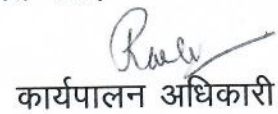 कार्यपालन अधिकारी